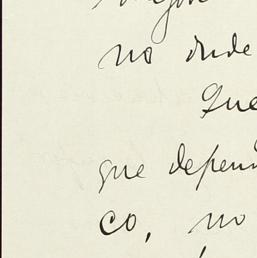 no dude
Que
que depen
co, no